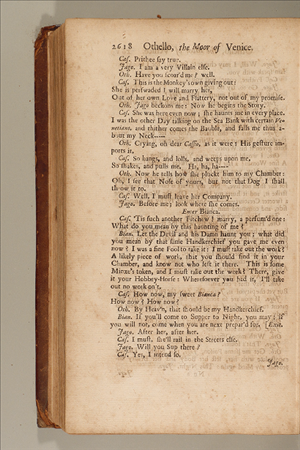 2618 Othello, the Moor of Venice.
Cas. Prithee say true.
Jago. I am a very Villain else.
Oth. Have you scour'd me? well.
Cas. This is the Monkey's own giving out:
She is perswaded I will marry her,
Out of her own Love and Flattery, not out of my promise.
Oth. Jago beckons me: Now he begins the Story.
Cas. She was here even now; she haunts me in every place.
I was the other Day talking on the Sea Bank with certain Ve-
netians, and thither comes the Bauble, and falls me thus a-
bout my Neck——
Oth. Crying, oh dear Cassio, as it were: His gesture im-
ports it.
Cas. So hangs, and lolls, and weeps upon me,
So shakes, and pulls me. Ha, ha, ha——
Oth. Now he tells how she pluckt him to my Chamber:
Oh, I see that Nose of yours, but not that Dog I shall
throw it to.
Cas. Well, I must leave her Company.
Jago. Before me; look where she comes.
Enter Bianca.
Cas. 'Tis such another Fitchew! marry, a perfum'd one:
What do you mean by this haunting of me?
Bian. Let the Devil and his Dam haunt you: what did
you mean by that same Handkerchief you gave me even
now? I was a fine Fool to take it: I must take out the work?
A likely piece of work, that you should find it in your
Chamber, and know not who left it there. This is some
Minx's token, and I must take out the work? There, give
it your Hobby-Horse: Wheresoever you had it, I'll take
out no work on't.
Cas. How now, my sweet Bianca?
How now? How now?
Oth. By Heav'n, that should be my Handkerchief.
Bian. If you'll come to Supper to Night, you may; if
you will not, come when you are next prepar'd for. [Exit.
Jago. After her, after her.
Cas. I must, she'll rail in the Streets else.
Jago. Will you Sup there?
Cas. Yes, I intend so.
Jago.